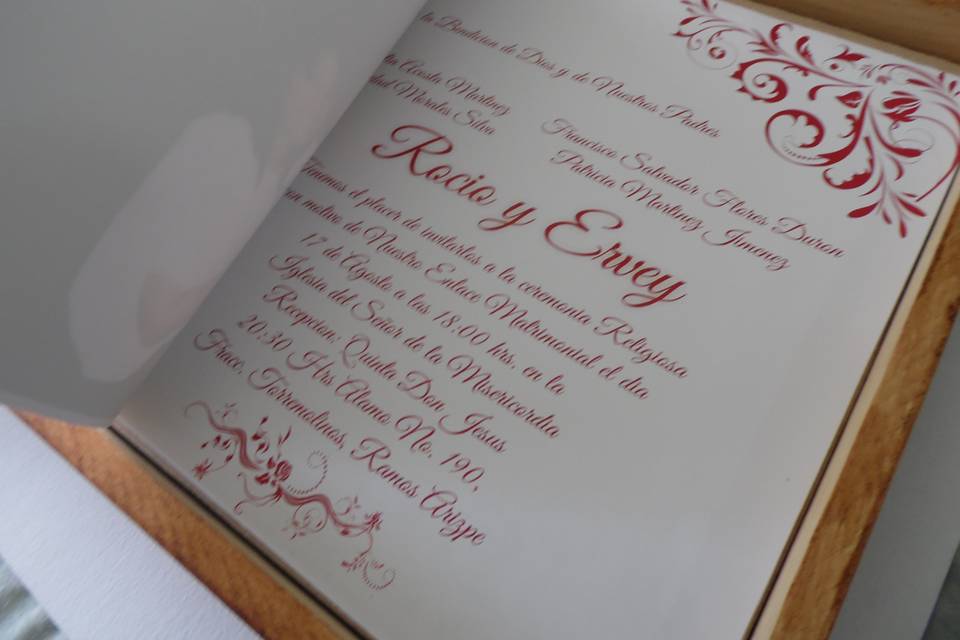 la Bendicion de Dios y de Nuestros Padres
Acosta Martinez
Morales Silva
Francisco Salvador Flores Duron
Patricia Martinez Jimenez
Rocio y Ervey
Tenemos el placer de invitarlos a la ceremonia Religiosa
con motivo de Nuestro Enlace Matrimonial el dia
17 de Agosto a las 18:00 hrs. en la
Iglesia del Señor de la Misericordia
Recepcion: Quinta Don Jesus
20:30 Hrs Alamo No. 190,
Fracc. Torremolinos, Ramos Arizpe